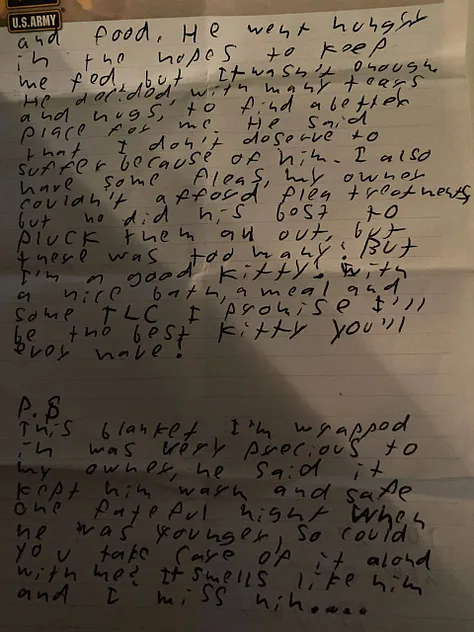 U.S. ARMY
and food. He went hungry
in the hopes to keep
me fed, but It wasn't enough.
He decided, with many tears
and hugs, to find a better
place for me. He said
that I don't deserve to
suffer because of him. I also
have some fleas, my owner
couldn't afford flea treatments
but he did his best to
pluck them all out, but
there was too many! But
I'm a good kitty! With
a nice bath, a meal and
some TLC I promise I'll
be the best kitty you'll
ever have!
P.S
This blanket I'm wrapped
in was very precious to
my owner, he said it
kept him warm and safe
one fateful night when
he was younger, so could
you take care of it alond
with me? It smells like him
and I miss him....